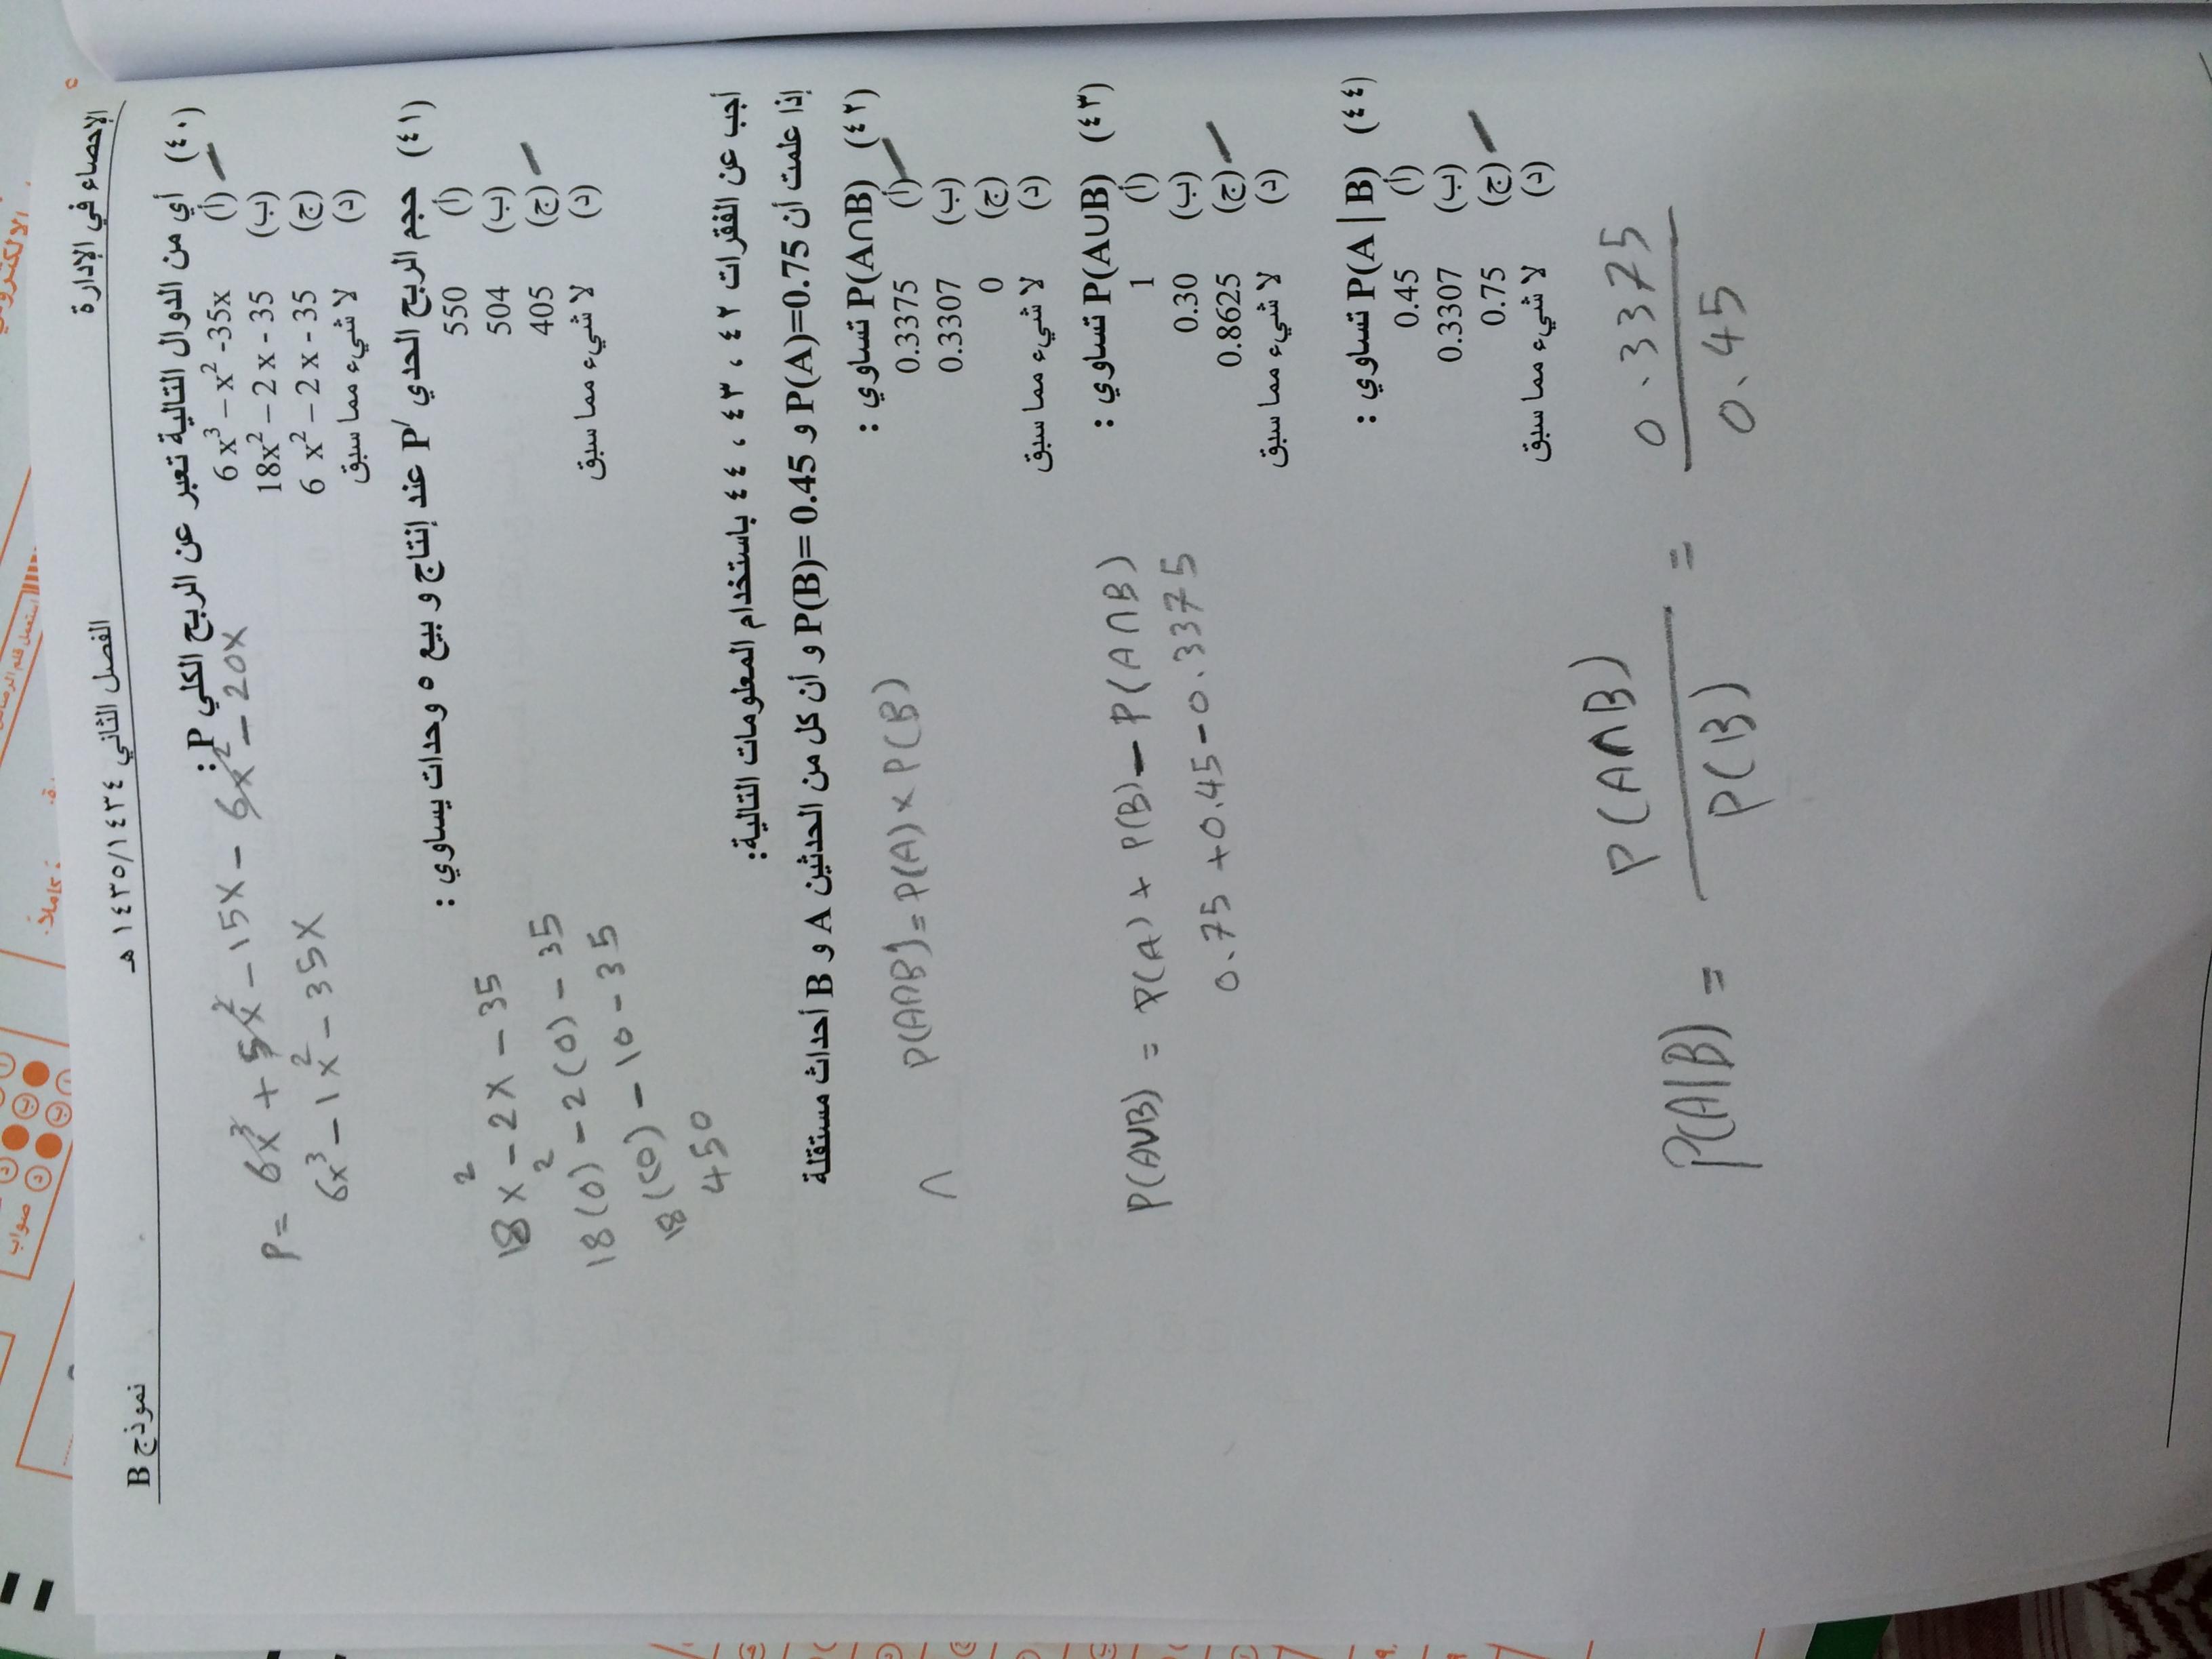 الإحصاء في الإدارة
الفصل الثاني ١٤٣٥/١٤٣٤ هـ
نموذج B
(٤٠) أي من الدوال التالية تعبر عن الربح الكلي P :
(أ) 6 x³ – x² -35x
(ب) 18x² – 2 x - 35
(ج) 6 x² – 2 x - 35
(د) لا شيء مما سبق
P = 6x³ + 5x² - 15x - 6x² - 20x
6x³ - 1x² - 35x
(٤١) حجم الربح الحدي P′ عند إنتاج و بيع ٥ وحدات يساوي :
(أ) 550
(ب) 504
(ج) 405
(د) لا شيء مما سبق
18x² - 2x - 35
18(5)² - 2(5) - 35
- 10 - 35
450
أجب عن الفقرات ٤٢ ، ٤٣ ، ٤٤ باستخدام المعلومات التالية:
إذا علمت أن P(A)=0.75 و P(B)= 0.45 و أن كل من الحدثين A و B أحداث مستقلة
(٤٢) P(A∩B) تساوي :
(أ) 0.3375
(ب) 0.3307
(ج) 0
(د) لا شيء مما سبق
P(A∩B) = P(A) x P(B)
∩
(٤٣) P(A∪B) تساوي :
(أ) 1
(ب) 0.30
(ج) 0.8625
(د) لا شيء مما سبق
P(A∪B) = P(A) + P(B) - P(A∩B)
0.75 + 0.45 - 0.3375
(٤٤) P(A | B) تساوي :
(أ) 0.45
(ب) 0.3307
(ج) 0.75
(د) لا شيء مما سبق
P(A|B) = P(A∩B) / P(B) = 0.3375 / 0.45
صواب